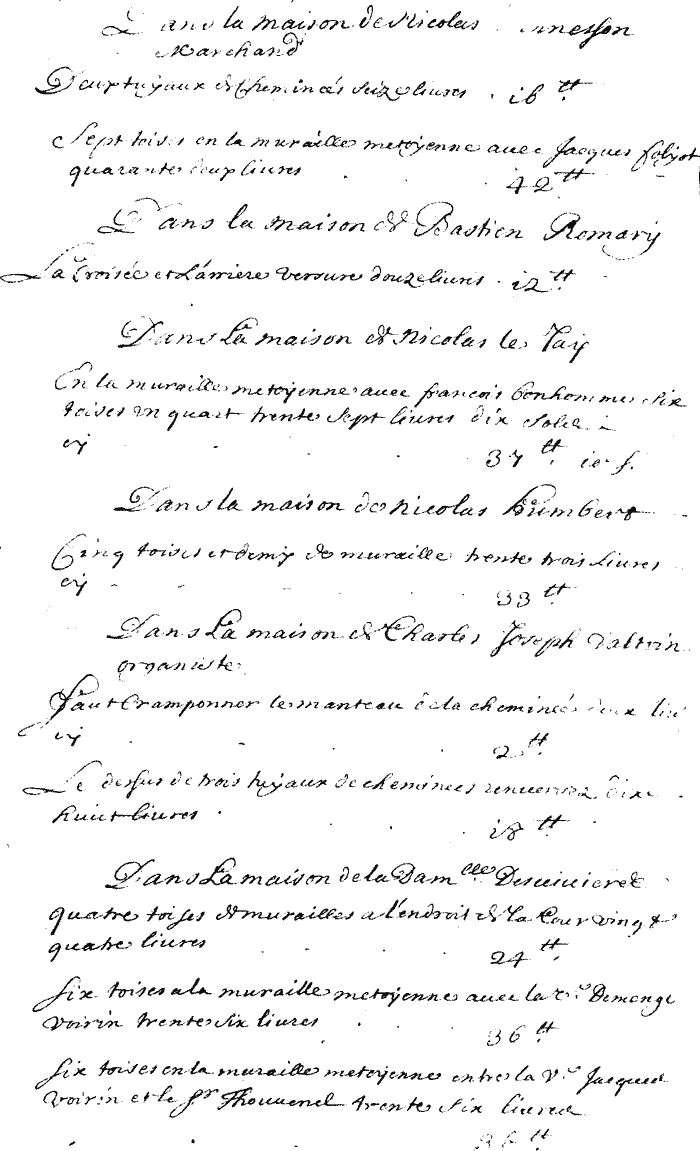 Dans la maison de Nicolas
Marchand
Deux tuyaux de Cheminées seize livres . 16 tt
Sept toises en la muraille metoyenne avec Jacques
quarante deux livres . 42 tt
Dans la maison de Bastien Romary
La Croisée et L'arriere versure douze livres . 12 tt
Dans La maison de Nicolas le Jay
En la muraille metoyenne avec francois bonhomme six
toises un quart trente sept livres dix sols
cy
37 tt 10 s.
Dans la maison de Nicolas humbert
Cinq toises et demy de muraille trente trois livres
cy 33 tt
Dans La maison de Charles Joseph
organiste
faut Cramponner le manteau de la cheminée deux liv
cy 2 tt
Le dessus de trois tuyaux de cheminées renversez dix
huict livres . 18 tt
Dans La maison de la Dam.elle
quatre toises de murailles a l'endroit de la Cour vingt
quatre livres 24 tt
Six toises a la muraille metoyenne avec la v.e Demenge
voirin trente six livres . 36 tt
Six toises en la muraille metoyenne entre la V.e Jacques
Voirin et le Sr Thouvenel trente six livres
36 tt